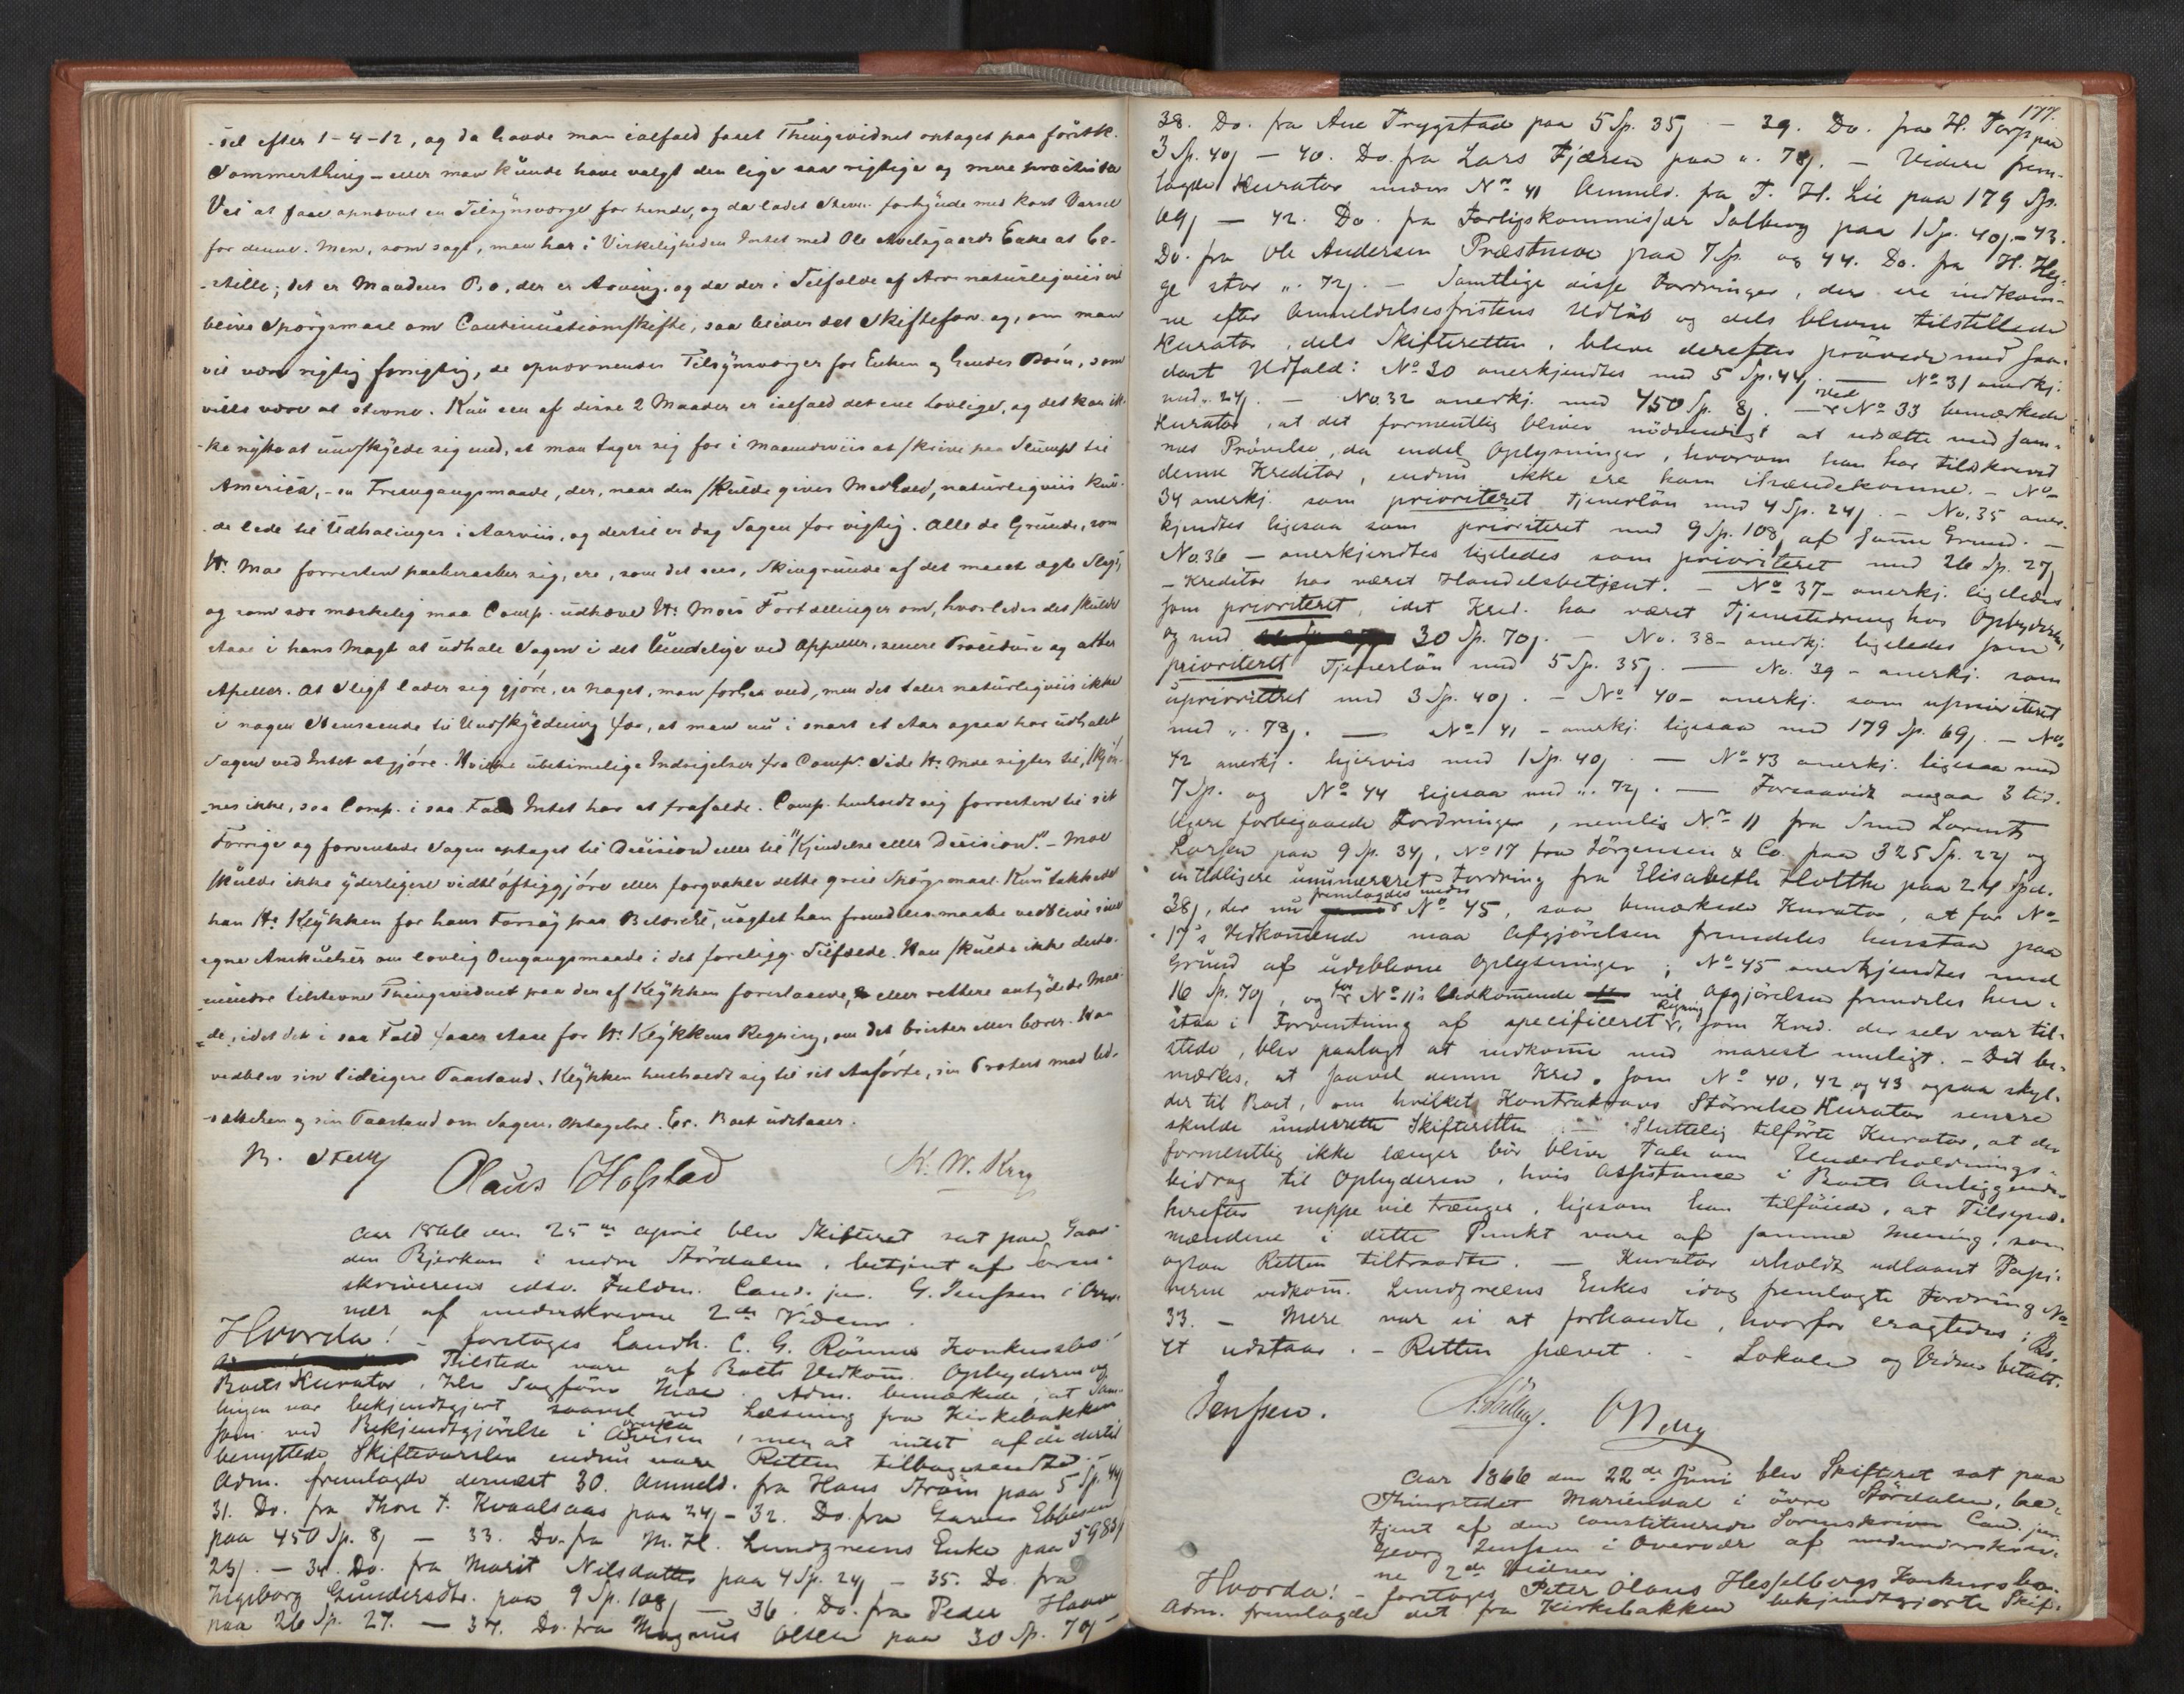 -del efter 1-4-12, og da havde man ialfald faaet Thingsvidnet optaget paa förstk.
Sommerthing - eller man kunde have valgt den lige saa rigtige og mere
Vei at faae opnævnt en Tilsynsværge for hende, og da ladet Stevn. forkynde med kort Varsel
for denne. Men, som sagt, man har i Virkeligheden Intet med Ole Enke at be-
-stille; det er Mandens Bo, der er Arving, og da der i Tilfælde af naturligviis vil
blive Spörgsmaal om Continuationsskifte, saa bliver det Skifteforv. og, om man
vil være rigtig forsigtig, de opnævnende Tilsynsværger for Enken og hendes Börn, som
vilde være at stevne. Kun een af disse 2 Maader er ialfald det ene Lovlige, og det kan ik-
-ke nytte at undskylde sig med, at man tager sig for i maanedsviis at skrive paa Slump til
America, - en Fremgangsmaade, der, naar den skulde gives Medhold, naturligviis kun-
de lede til Udhalinger i Aarviis, og dertil er dog Sagen for vigtig. Alle de Grunde, som
Hr. Moe forresten paaberaaber sig, ere, som det sees, Skingrunde af det meest ægte Slags,
og som sær mærkelig maa Comp. udhæve Hr. Moes Fortællinger om, hvorledes det skulde
staae i hans Magt at udhale Sagen i det Uendelige ved Appeller, senere Procedure og atter
Apeller. At Sligt lader sig gjöre, er noget, man forher veed, men det taler naturligviis ikke
i nogen Henseende til Undskyldning for, at man nu i snart et Aar ogsaa har udhalet
Sagen ved Intet at gjöre. Hvilke ubetimelige Indsigelser fra Comp. Side Hr. Moe sigter til, skjön-
-nes ikke, saa Comp. i saa Fald Intet har at frafalde. Comp. henholdt sig forresten til sit
Forrige og forventede Sagen optaget til Decision eller til "Kjendelse eller Decision". - Moe
skulde ikke yderligere vidtlöftiggjöre eller forqvakle dette greie Spörgsmaal. Kun takkede
han Hr. Klykken for hans Forsög paa Belærelse, uagtet han fremdeles maatte vedblive sine
egne Anskuelser om lovlig Omgangsmaade i det foreligg. Tilfælde. Han skulde ikke desto-
mindre tilstevne Thingsvidnet paa den af Klykken foreslaaede, eller rettere antydede Maa-
=de, idet det i saa Fald faaer staae for Hr. Klykkens Regning, om det brister eller bærer. Han
vedblev sin tidligere Paastand. Klykken henholdt sig til sit Anförte, sin Protest mod Ud-
-sættelsen og sin Paastand om Sagens Optagelse. Er. Boet udstaaer.
Olaus Hofstad
Aar 1866 den 25de April blev Skifteret sat paa Gaar-
den Bjerkan i nedre Stördalen, betjent af Soren-
skriverens edsv. Fuldm. Cand. jur. G. Jenssen i Over-
vær af underskrevne 2de Vidner.
Hvorda! - foretoges Landh. C. G. Rönnes Konkursbo.
Tilstede vare af Boets Vedkom. Opbyderen og
Boets Kurator, Hr. Sagförer Moe. Adm. bemærkede, at Sam-
lingen var bekjendtgjort saavel ved Læsning fra Kirkebakken
som ved Bekjendtgjörelse i Avisen, men at intet af de dertil
benyttede Skiftevarsler endnu vare Retten tilbagesendte.
Adm. fremlagde dernæst 30. Anmeld. fra Hans Ström paa 5 Sp. 44ß
31. Do. fra Thore T. Kvaalsaas paa 24ß - 32. Do. fra Ebbesen
paa 450 Sp. 8ß - 33. Do. fra M. H. Lundgreens Enke paa 598
23ß. - 34. Do. fra Marit Nilsdatter paa 4 Sp. 24ß - 35. Do. fra
Ingeborg Gundersdtr. paa 9 Sp. 108ß - 36. Do. fra Peder
paa 26 Sp. 27. - 37. Do. fra Magnus Olsen paa 30 Sp. 70ß -
177.
38. Do. fra Ane Trygstad paa 5 Sp. 35ß - 39. Do. fra H. Torp paa
3 Sp. 40ß - 40. Do. fra Lars Fjæren paa ". 78ß. - Videre frem-
lagde Kurator under No. 41 Anmeld. fra T. H. Lie paa 179 Sp.
69ß - 42. Do. fra Forligskommissær Solberg paa 1 Sp. 40ß. - 43.
Do. fra Ole Andersen Præstmoe paa 7 Sp. og 44. Do. fra H. Heg-
ge stor ". 72ß. - Samtlige disse Fordringer, der ere indkom-
ne efter Anmeldelsesfristens Udlöb og dels blevne tilstillede
Kurator, dels Skifteretten, bleve derefter prövede med saa-
dant Udfald: No 30 anerkjendtes med 5 Sp. 44ß. - No 31 anerkj.
med 24ß. - No. 32 anerkj. med 450 Sp. 8ß. - Ved No 33 bemærkede
Kurator, at det formentlig bliver nödvendigt at udsætte med sam-
mes Prövelse, da endel Oplysninger, hvorom han har tilskrevet
denne Kreditor, endnu ikke ere ham ihændekomne. - No
34 anerkj. som prioriteret Tjenerlön med 4 Sp. 24ß. - No. 35 aner-
kjendtes ligesaa som prioriteret med 9 Sp. 108ß af samme Grund. -
No. 36 - anerkjendtes ligeledes som prioriteret med 26 Sp. 27ß
- Kreditor har været Handelsbetjent. - No 37 - anerkj. ligeledes
som prioriteret, idet Kred. har været Tjenestedreng hos Opbyderen,
og med 30 Sp. 70ß. - No. 38 - anerkj. ligeledes som
prioriteret Tjenerlön med 5 Sp. 35ß. - No. 39 - anerkj. som
uprioriteret med 3 Sp. 40ß. - No 40 - anerkj. som uprioriteret
med ". 78ß. - No 41 - anerkj. ligesaa med 179 Sp. 69ß. - No.
42 anerkj. ligervis med 1 Sp. 40ß. - No 43 anerkj. ligesaa med
7 Sp. og No 44 ligesaa med ". 72ß. - Forsaavidt angaar 3 tid-
ligere forbigaaede Fordringer, nemlig No. 11 fra Smed Lorents
Larsen paa 9 Sp. 34ß, No 17 fra Jörgensen & Co. paa 325 Sp. 22ß og
en tidligere unumereret Fordring fra Elisabeth Holthe paa 24 Spd.
38ß, der nu fremlagdes under No 45, saa bemærkede Kurator, at for No
17's Vedkommende maa Afgjörelsen fremdeles henstaa paa
Grund af udeblevne Oplysninger; No 45 anerkjendtes med
16 Sp. 70ß, og for No 11's Vedkommende vil Afgjörelsen fremdeles hen-
staa i Forventning af specificeret Regning, som Kred. der selv var til-
stede, blev paalagt at indkomme med snarest muligt. - Det be-
mærkes, at saavel denne Kred. som No 40, 42 og 43 ogsaa skyl-
der til Boet, om hvilket Kontrakravs Störrelse Kurator senere
skulde underrette Skifteretten. - Sluttelig tilförte Kurator, at der
formentlig ikke længer bör blive Tale om Underholdnings-
bidrag til Opbyderen, hvis Assistance i Boets Anliggender
herefter neppe vil trænges, ligesom han tilföiede, at Tilsyns-
mændene i dette Punkt vare af samme Mening, som
ogsaa Retten tiltraadte. - Kurator erholdt udlaant Papi-
rerne vedkom. Lundgreens Enkes idag fremlagte Fordring No
33. - Mere var ei at forhandle, hvorfor eragtedes: Bo-
et udstaar. - Retten hævet. - Lokale og Vidner betalt.
Jenssen.
Aar 1866 den 22de Juni blev Skifteret sat paa
Thingstedet Mariendal i övre Stördalen, be-
tjent af den constituerede Sorenskriver Cand. jur.
Georg Jenssen i Overvær af medunderskrev-
ne 2de Vidner.
Hvorda! - foretoges Peter Olaus Hesselbergs Konkursbo.
Adm. fremlagde det fra Kirkebakken bekjendtgjorte Skif-